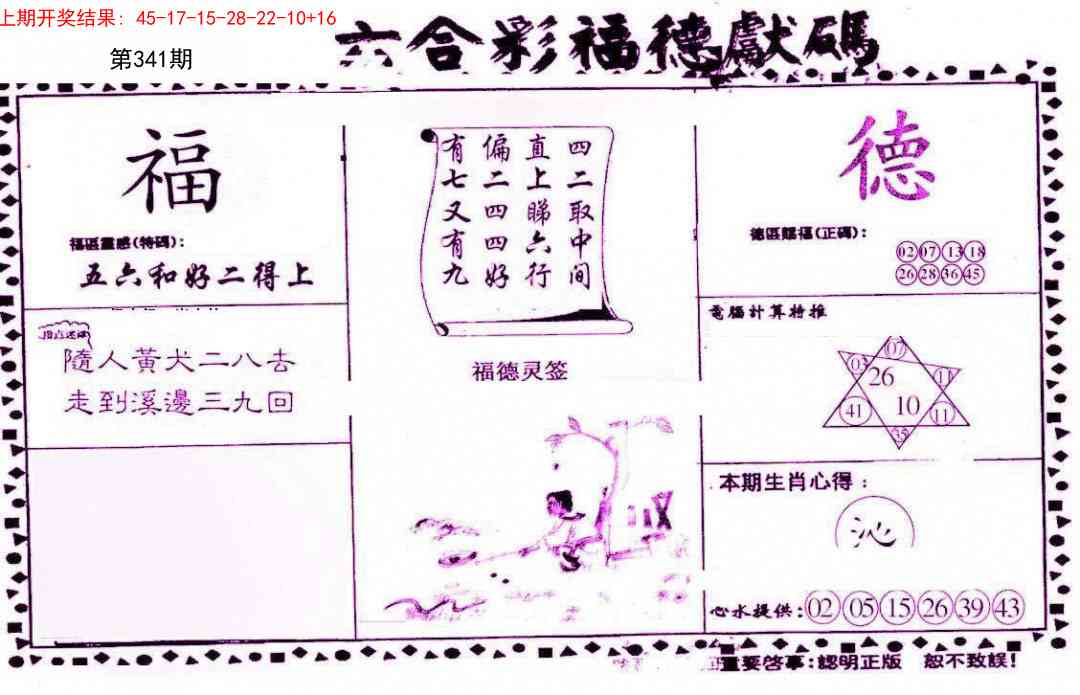 上期开奖结果: 45-17-15-28-22-10+16
第341期
六合彩福德獻碼
福
福區靈感(特碼):
五六和好二得上
隨人黃犬二八去
走到溪邊三九回
四二取中间
直上睇六行
偏二四四好
有七又有九
福德灵签
德
德區賜福(正碼):
02 07 13 18
26 28 36 45
電腦計算特推
07
03 26 11
41 10 11
35
本期生肖心得:
沁
心水提供: 02 05 15 26 39 43
重要啓事:認明正版 恕不致誤!